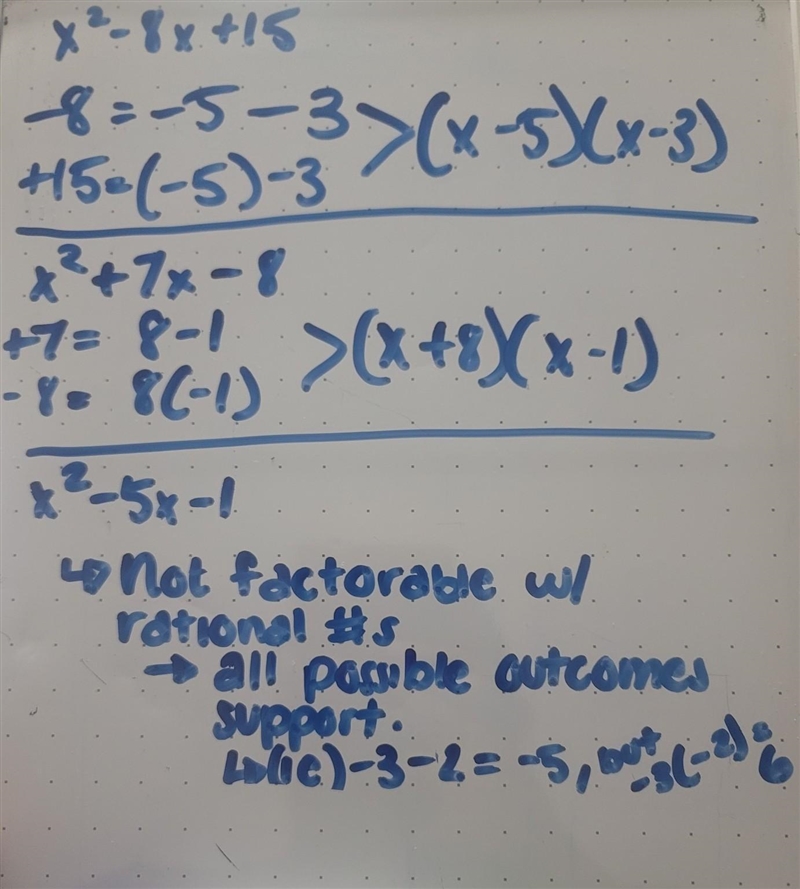 x² - 8x + 15
-8 = -5 - 3 > (x - 5)(x - 3)
+15 = (-5) - 3
x² + 7x - 8
+7 = 8 - 1
> (x + 8)(x - 1)
-8 = 8(-1)
x² - 5x - 1
↳ Not factorable w/
rational #s
→ all possible outcomes
support.
↳ (ie) -3 - 2 = -5, but -3(-2) = 6